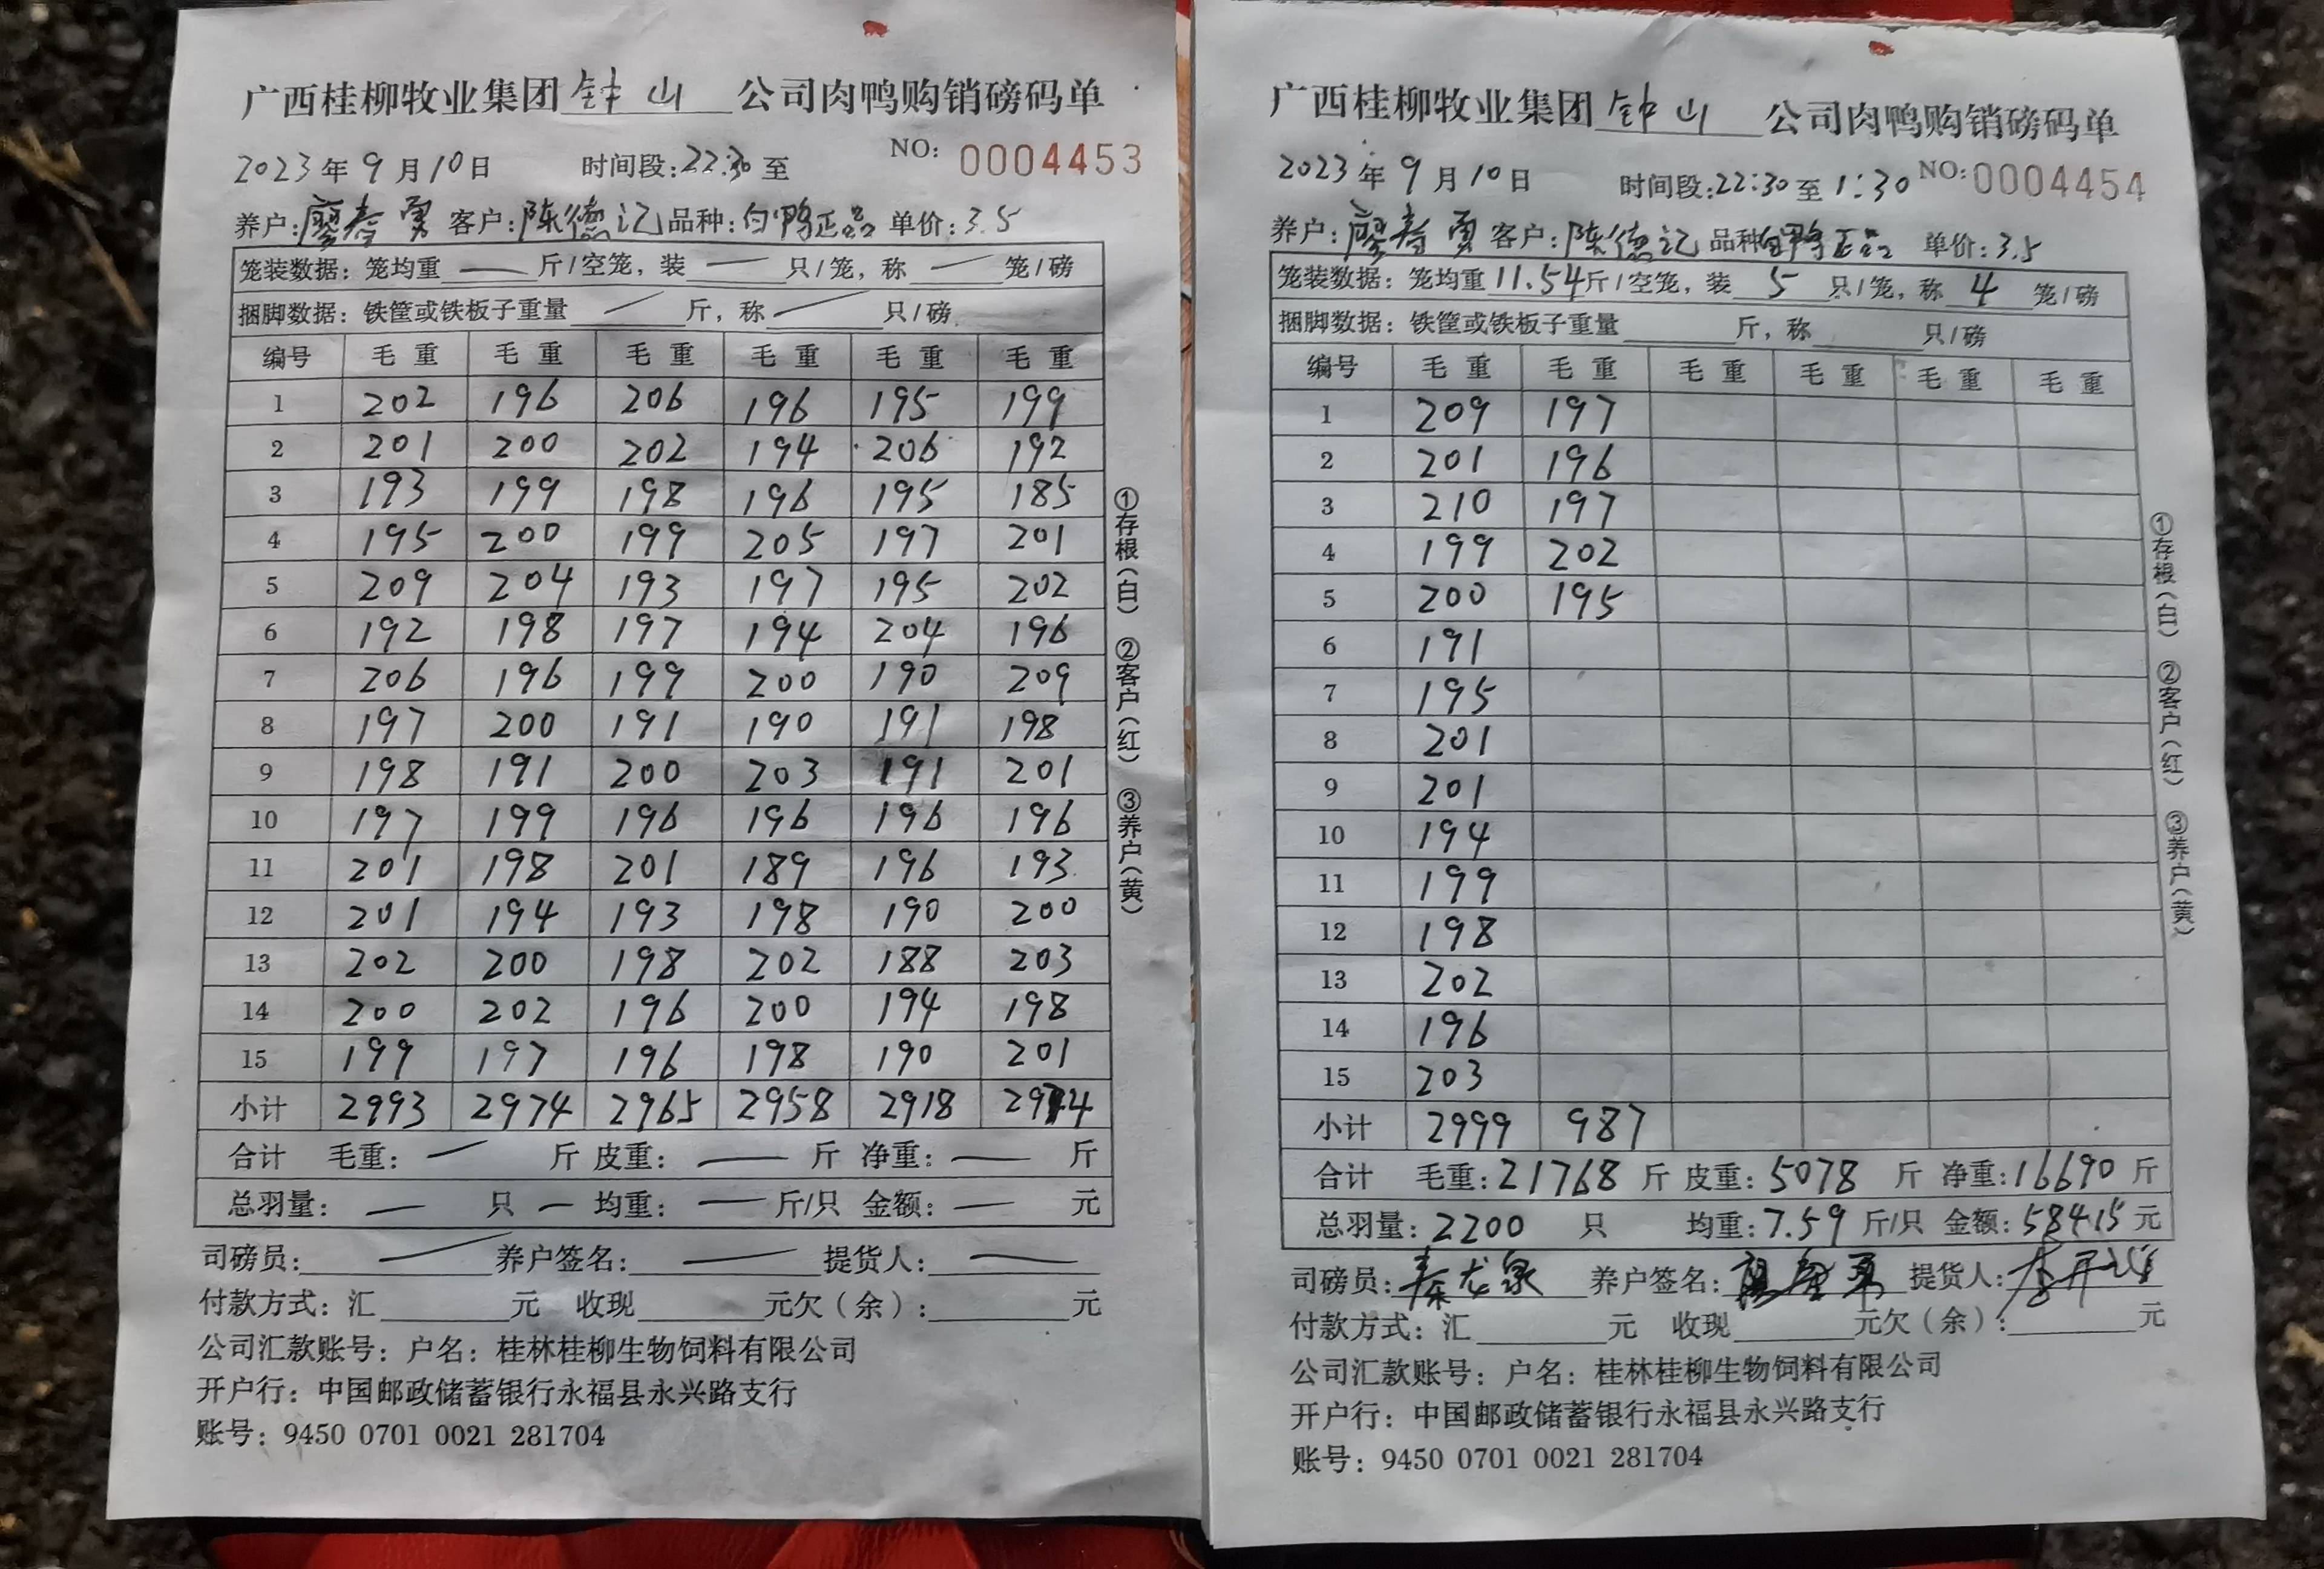 广西桂柳牧业集团钟山公司肉鸭购销磅码单
2023年9月10日 时间段:22:30至 NO: 0004453
养户:廖春勇 客户:陈德记 品种:白鸭正品 单价:3.5
笼装数据:笼均重 — 斤/空笼,装 — 只/笼,称 — 笼/磅
捆脚数据:铁筐或铁板子重量 — 斤,称 — 只/磅
编号 毛重 毛重 毛重 毛重 毛重 毛重
1 202 196 206 196 195 199
2 201 200 202 194 206 192
3 193 199 198 196 195 185
4 195 200 199 205 197 201
5 209 204 193 197 195 202
6 192 198 197 194 204 196
7 206 196 199 200 190 209
8 197 200 191 190 191 198
9 198 191 200 203 191 201
10 197 199 196 196 196 196
11 201 198 201 189 196 193
12 201 194 193 198 190 200
13 202 200 198 202 188 203
14 200 202 196 200 194 198
15 199 197 196 198 190 201
小计 2993 2974 2965 2958 2918 2974
合计 毛重: — 斤 皮重: — 斤 净重: — 斤
总羽量: — 只 — 均重: — 斤/只 金额: — 元
司磅员: — 养户签名: — 提货人: —
付款方式:汇 元 收现 元欠(余): 元
公司汇款账号:户名:桂林桂柳生物饲料有限公司
开户行:中国邮政储蓄银行永福县永兴路支行
账号:9450 0701 0021 281704
①存根(白) ②客户(红) ③养户(黄)
广西桂柳牧业集团钟山公司肉鸭购销磅码单
2023年9月10日 时间段:22:30至1:30 NO:0004454
养户:廖春勇 客户:陈德记 品种:白鸭正品 单价:3.5
笼装数据:笼均重11.54斤/空笼,装5只/笼,称4笼/磅
捆脚数据:铁筐或铁板子重量 斤,称 只/磅
编号 毛重 毛重 毛重 毛重 毛重 毛重
1 209 197
2 201 196
3 210 197
4 199 202
5 200 195
6 191
7 195
8 201
9 201
10 194
11 199
12 198
13 202
14 196
15 203
小计 2999 987
合计 毛重:21768斤 皮重:5078斤 净重:16690斤
总羽量:2200只 均重:7.59斤/只 金额:58415元
司磅员:秦龙泉 养户签名:廖春勇 提货人:
付款方式:汇 元 收现 元欠(余): 元
公司汇款账号:户名:桂林桂柳生物饲料有限公司
开户行:中国邮政储蓄银行永福县永兴路支行
账号:9450 0701 0021 281704
①存根(白) ②客户(红) ③养户(黄)